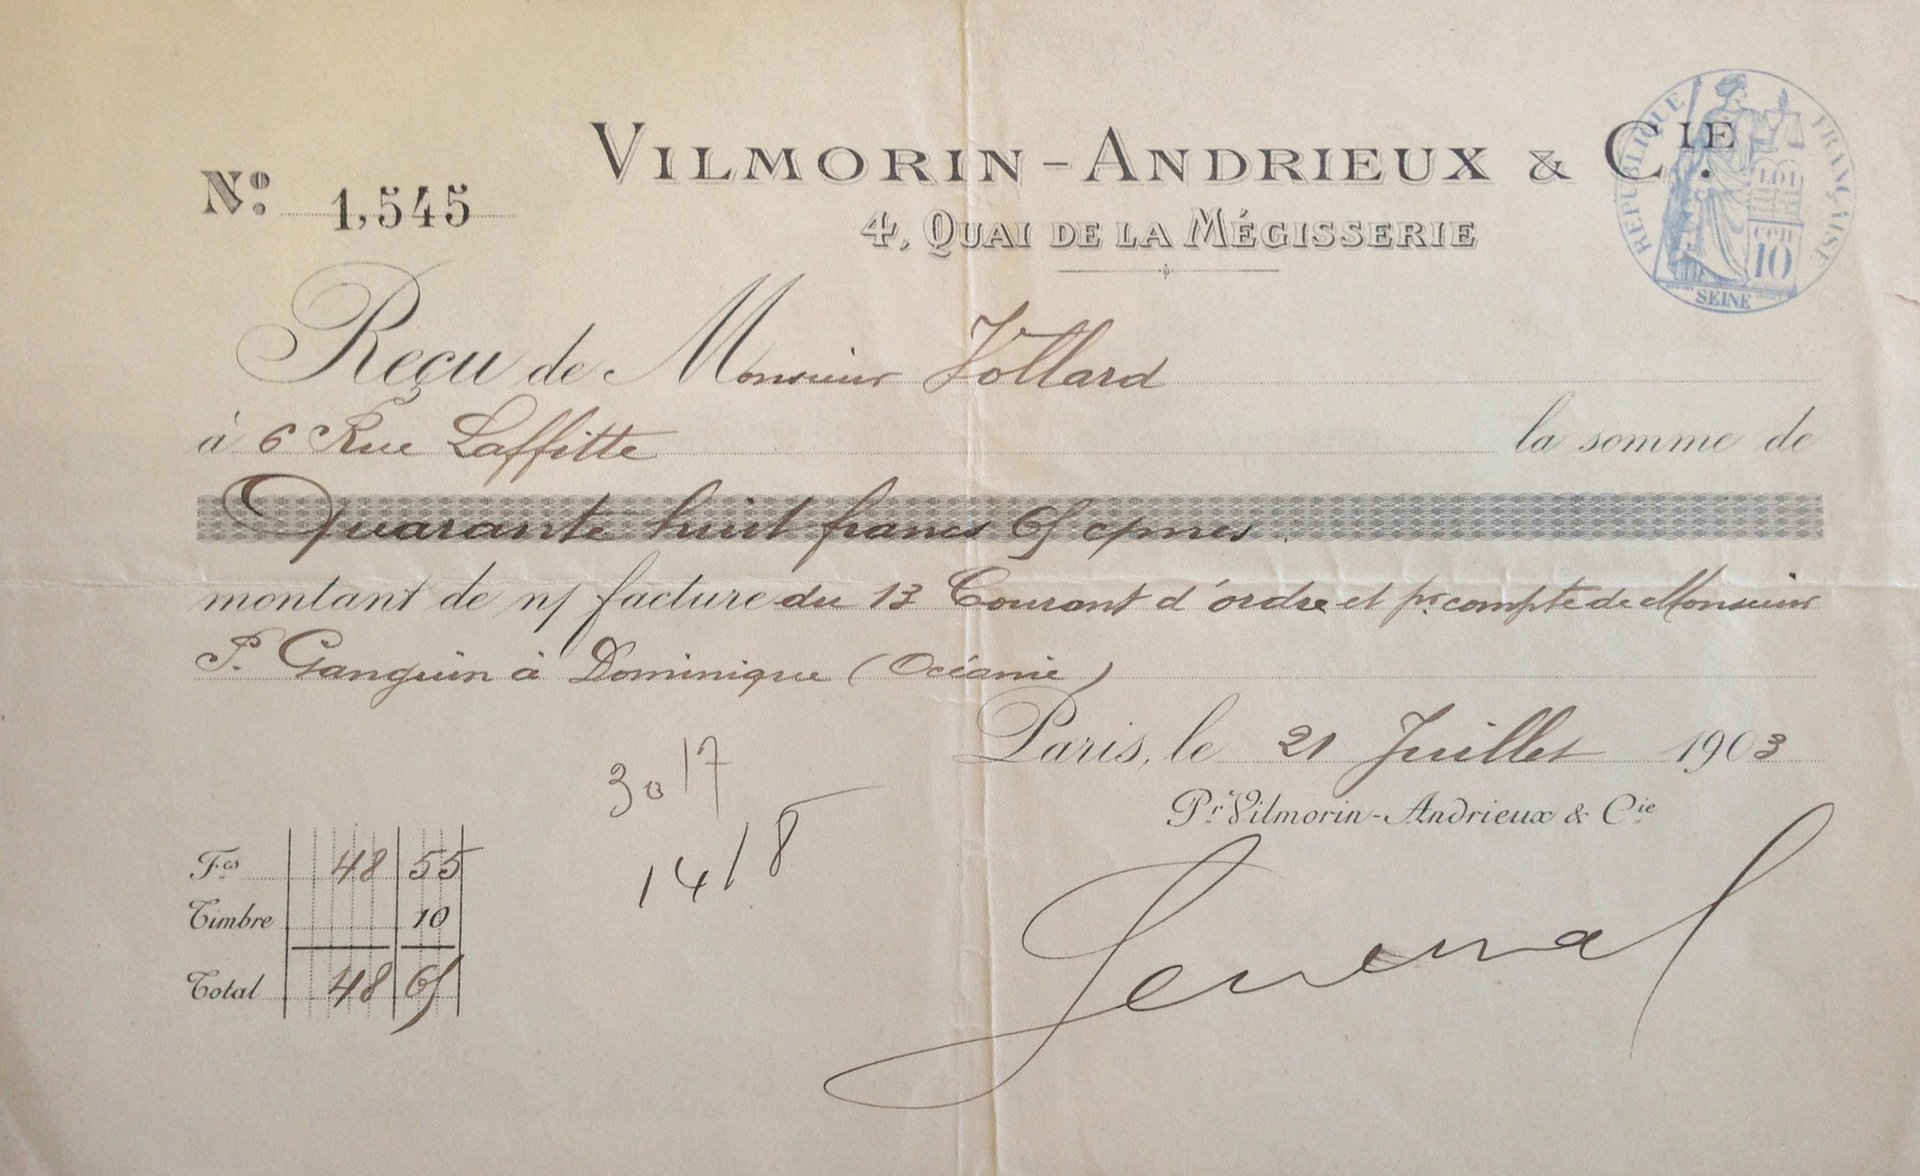 VILMORIN-ANDRIEUX & CIE.
No. 1,545
4, QUAI DE LA MÉGISSERIE
RÉPUBLIQUE FRANÇAISE
10
SEINE
Reçu de Monsieur Vollard
à 6 Rue Laffitte la somme de
Quarante huit francs 65 cmes
montant de n/ facture du 13 Courant d'ordre et pr compte de Monsieur
P. Ganguin à Dominique (Océanie)
Paris, le 21 Juillet 1903
30 17
Pr Vilmorin-Andrieux & Cie
14 18
Fcs 48 55
Timbre 10
Total 48 65